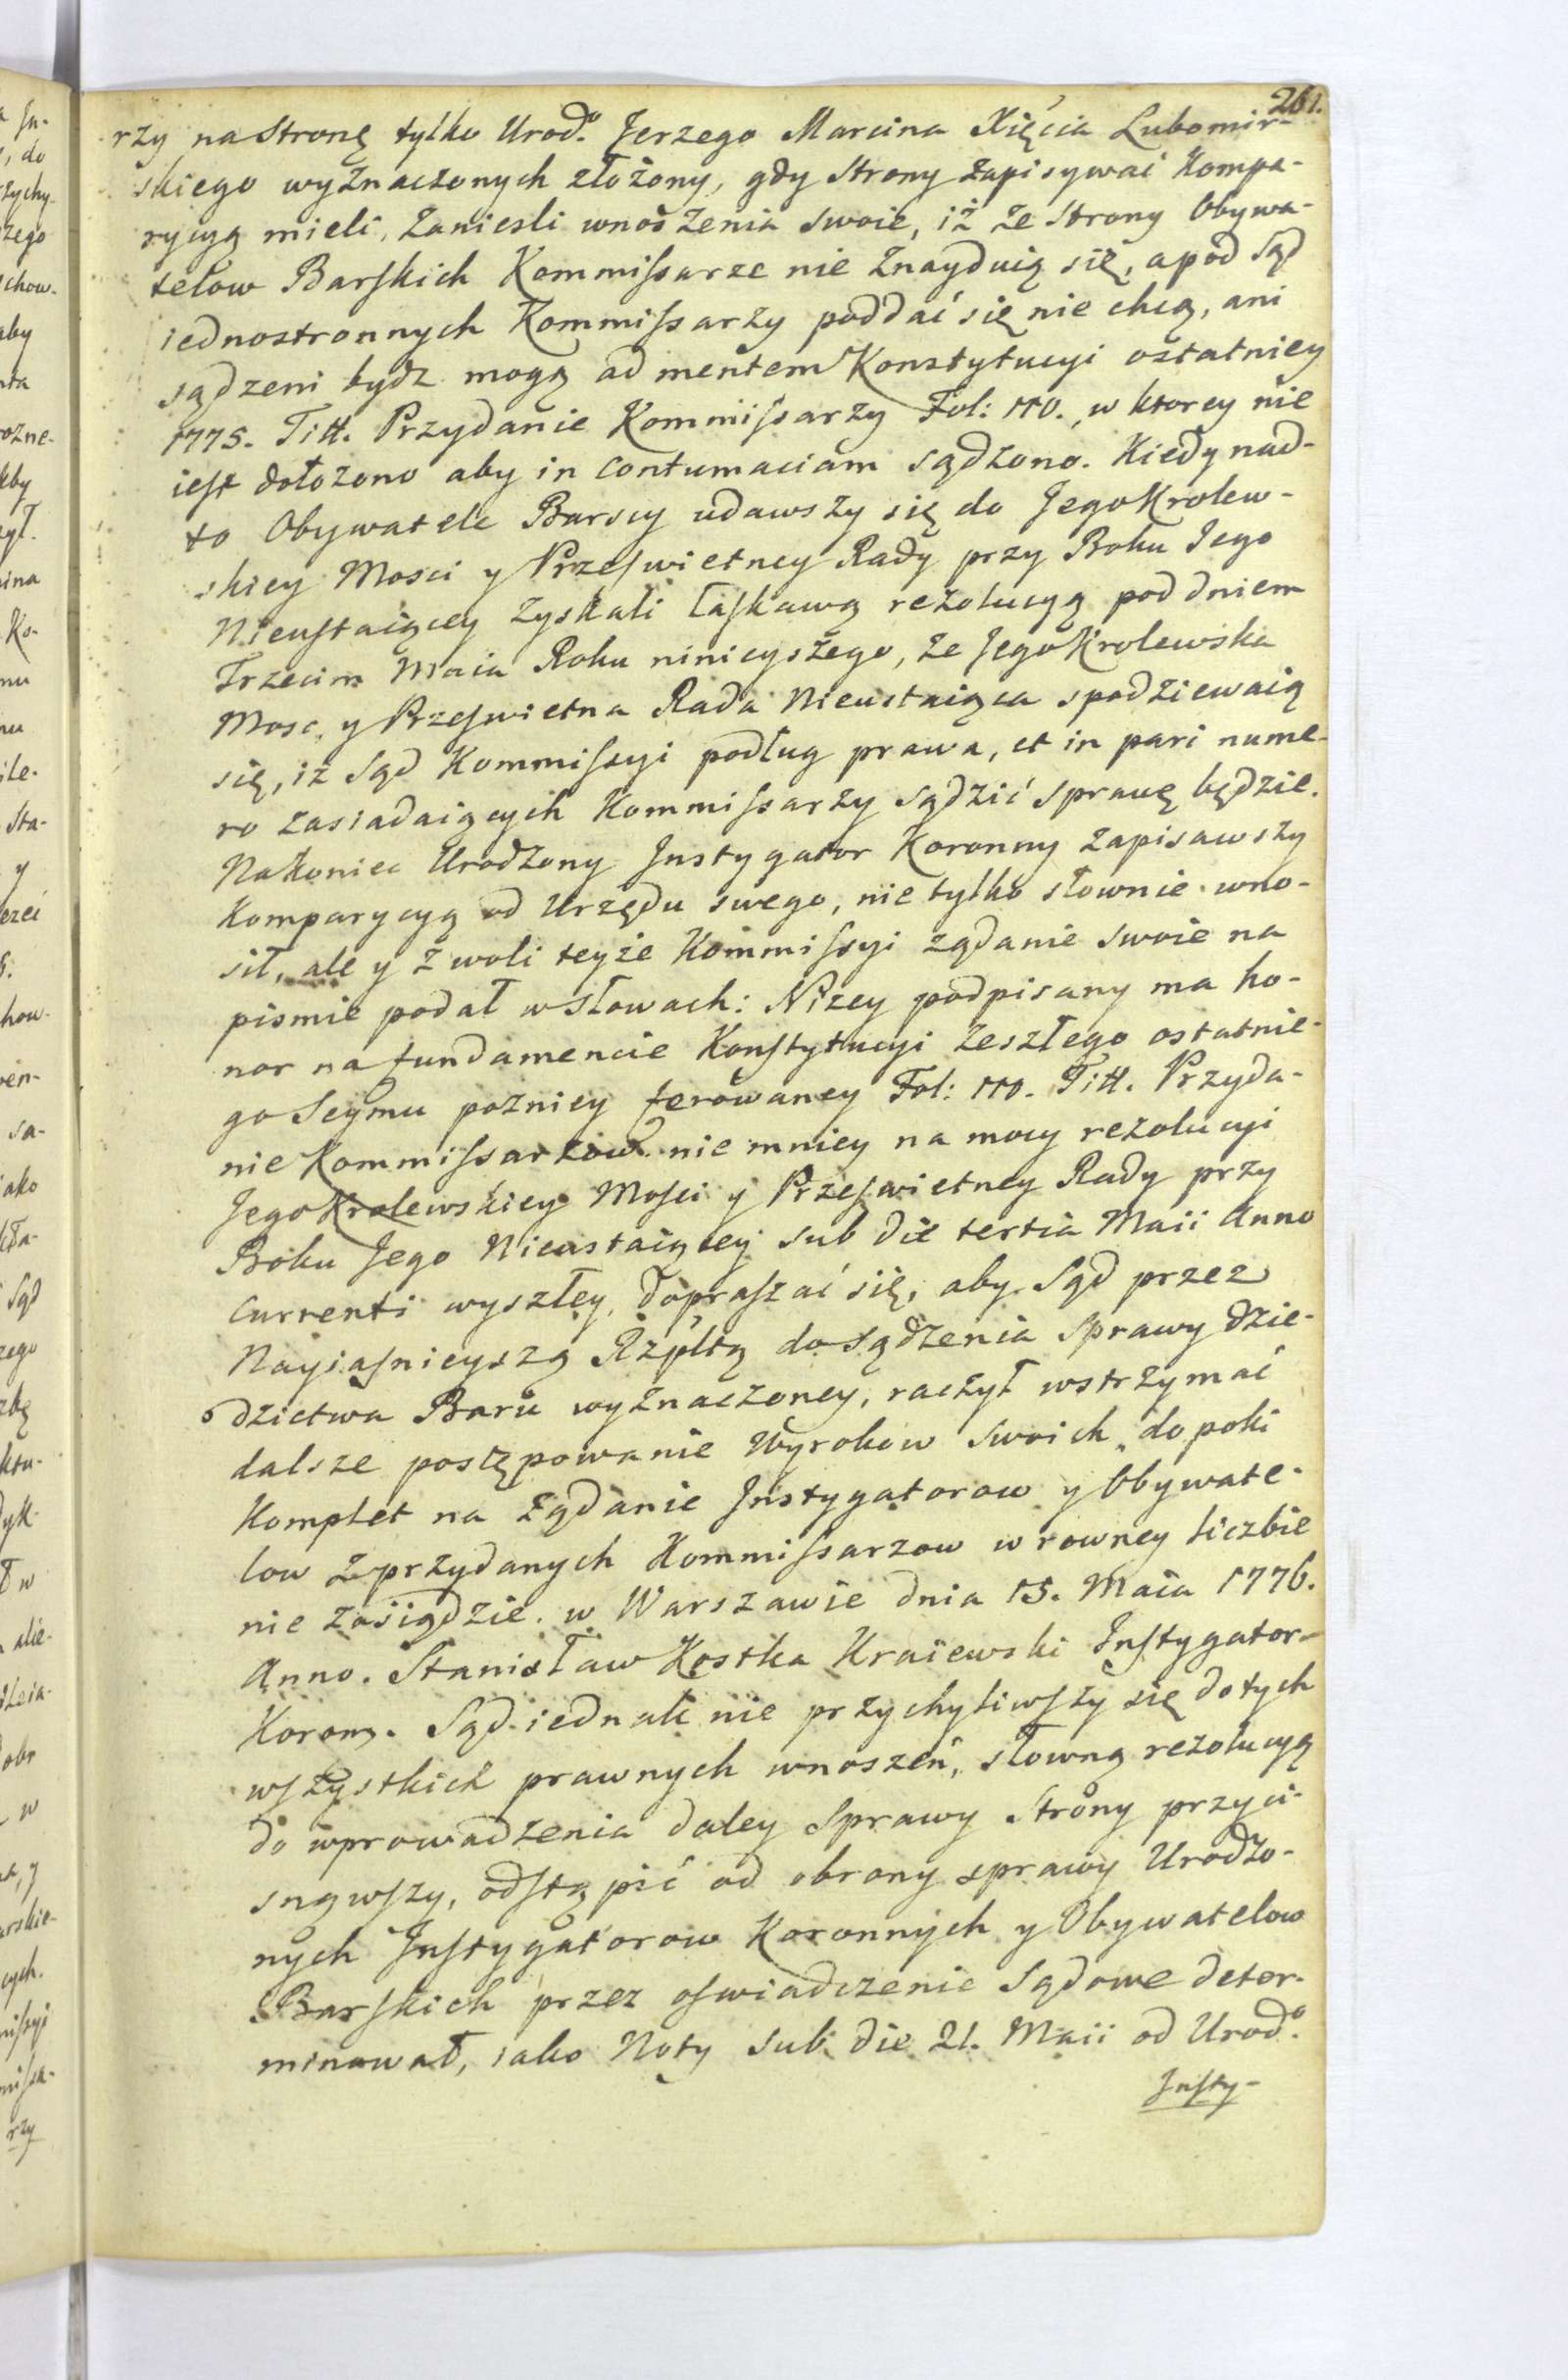 261.
rzy na Stronę tylko Urod.º Jerzego Marcina Xięcia Lubomir-
skiego wyznaczonych złożony, gdy Strony zapisywać Kompa-
rycyą mieli, zanieśli wnoszenia swoie, iż ze Strony Obywa-
telow Barskich Kommissarze nie znayduią się, a pod Sąd
iednostronnych Kommissarzy poddać się nie chcą, ani
sądzeni bydz mogą ad mentem Konstytucyi ostatniey
1775. Titt. Przydanie Kommissarzy Fol: 110., w ktorey nie
iest dołożono aby in contumaciam sądzono. Kiedy nad-
to Obywatele Barscy udawszy się do Jego Krolew-
skiey Mosci y Przeswietney Rady przy Boku Jego
Nieustaiącey zyskali łaskawą rezolucyą pod dniem
Trzecim Maia Roku ninieyszego, ze Jego Krolewska
Mosc, y Przeswietna Rada Nieustaiąca spodziewaią
się, iż Sąd Kommissyi podług prawa, et in pari nume-
ro zasiadaiących Kommissarzy sądzić sprawę będzie.
Nakoniec Urodzony Jnstygator Koronny zapisawszy
Komparycyą od Urzędu swego, nie tylko słownie wno-
sił, ale y z woli teyże Kommissyi ządanie swoie na
pismie podał w słowach: Nizey podpisany ma ho-
nor na fundamencie Konstytucyi zeszłego ostatnie-
go Seymu pozniey ferowaney Fol: 110. Titt. Przyda-
nie Kommissarzow nie mniey na mocy rezolucyi
Jego Krolewskiey Mosci y Przeswietney Rady przy
Boku Jego Nieustaiącey sub die tertia Maii Anno
currenti wyszłey, dopraszać się, aby Sąd przez
Nayiasnieyszą Rzpltą do sądzenia sprawy dzie-
dzictwa Baru wyznaczoney, raczył wstrzymać
dalsze postępowanie Wyrokow swoich, do poki
Komplet na żądanie Jnstygatorow y Obywate-
low z przydanych Kommissarzow w rowney liczbie
nie zasiądzie. w Warszawie dnia 15. Maia 1776.
Anno. Stanisław Kostka Kraiewski Jnstygator
Koron. Sąd iednak nie przychyliwszy się do tych
wszystkich prawnych wnoszeń, słowną rezolucyą
do wprowadzenia daley Sprawy Strony przyci-
snąwszy, odstąpić od obrony sprawy Urodzo-
nych Jnstygatorow Koronnych y Obywatelow
Barskich przez oswiadczenie Sądowe deter-
minował, iako Noty sub die 21. Maii od Urod.º
Jnsty-